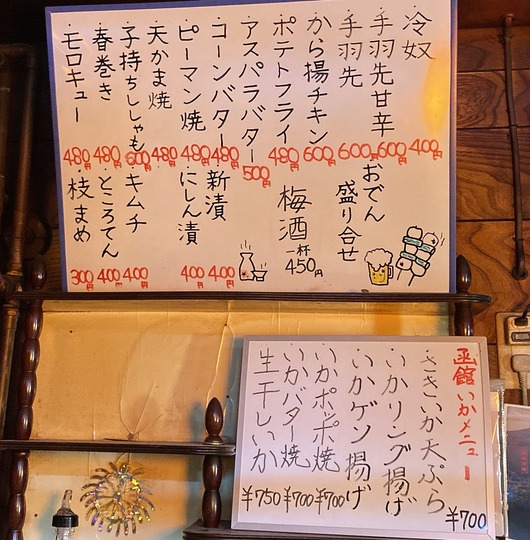 冷奴 400円
手羽先甘辛 600円
手羽先 600円
から揚チキン 600円
ポテトフライ 480円
アスパラバター 500円
コーンバター 480円
ピーマン焼 480円
天かま焼 480円
子持ちししゃも 600円
春巻き 480円
モロキュー 480円
おでん
盛り合せ
梅酒 一杯 450円
新漬 400円
にしん漬 400円
キムチ 400円
ところてん 400円
枝まめ 300円
函館いかメニュー
さきいか天ぷら ¥700
いかリング揚げ
いかゲソ揚げ
いかポッポ焼 ¥700
いかバター焼 ¥700
生干しいか ¥750